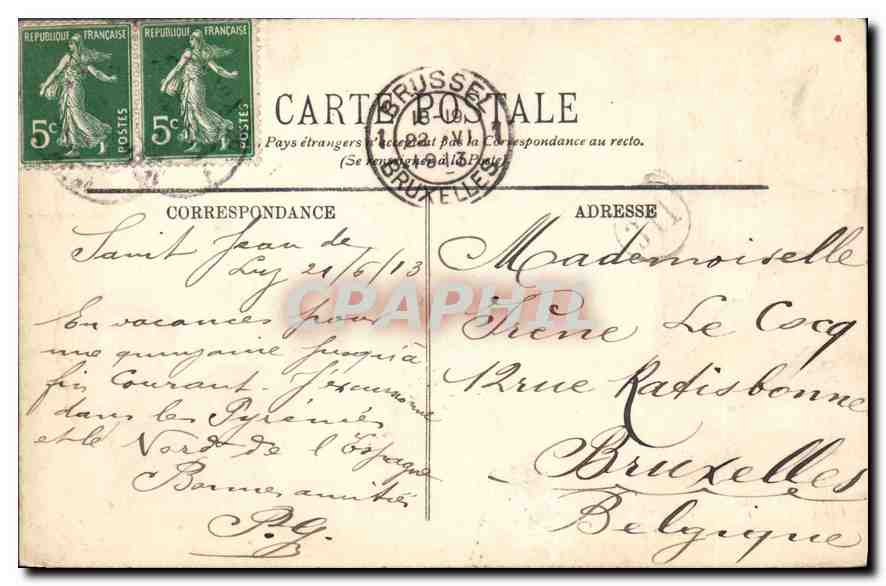 REPUBLIQUE FRANÇAISE
5c POSTES
REPUBLIQUE FRANÇAISE
5c POSTES
CARTE POSTALE
BRUSSEL
1 18-19 1
22 VI
1913
BRUXELLES
Pays étrangers n'acceptent pas la Correspondance au recto.
(Se renseigner à la Poste)
CORRESPONDANCE
Saint Jean de
Luz 21/6/13
En vacances pour
une quinzaine jusqu'à
fin Courant. J'excursionne
dans les Pyrénées
et le Nord de l'Espagne
Bonnes amitiés
P.G.
ADRESSE
Mademoiselle
Irène Le Cocq
12 rue Ratisbonne
Bruxelles
Belgique
CPAPHIL